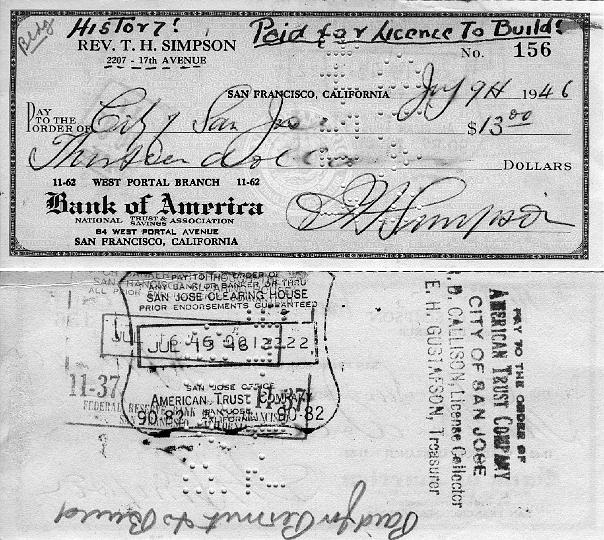 Bldg
History! Paid for Licence To Build!
REV. T. H. SIMPSON
2207 - 17TH AVENUE
No. 156
SAN FRANCISCO, CALIFORNIA July 9th 1946
PAY TO THE ORDER OF City of San Jose $13.00
Thirteen dollars DOLLARS
11-62 WEST PORTAL BRANCH 11-62
Bank of America
NATIONAL TRUST & SAVINGS ASSOCIATION
64 WEST PORTAL AVENUE
SAN FRANCISCO, CALIFORNIA
T H Simpson
PAY TO THE ORDER OF
ANY BANK OR BANKER OR THRU
SAN JOSE CLEARING HOUSE
PRIOR ENDORSEMENTS GUARANTEED
JUL 15 46
SAN JOSE OFFICE
AMERICAN TRUST COMPANY
SAN JOSE
90-82 90-82
11-37 11-37
FEDERAL RESERVE BANK
PAY TO THE ORDER OF
AMERICAN TRUST COMPANY
CITY OF SAN JOSE
D. CALLISON, License Collector
E. H. GUSTAFSON, Treasurer
Paid for Permit to Build